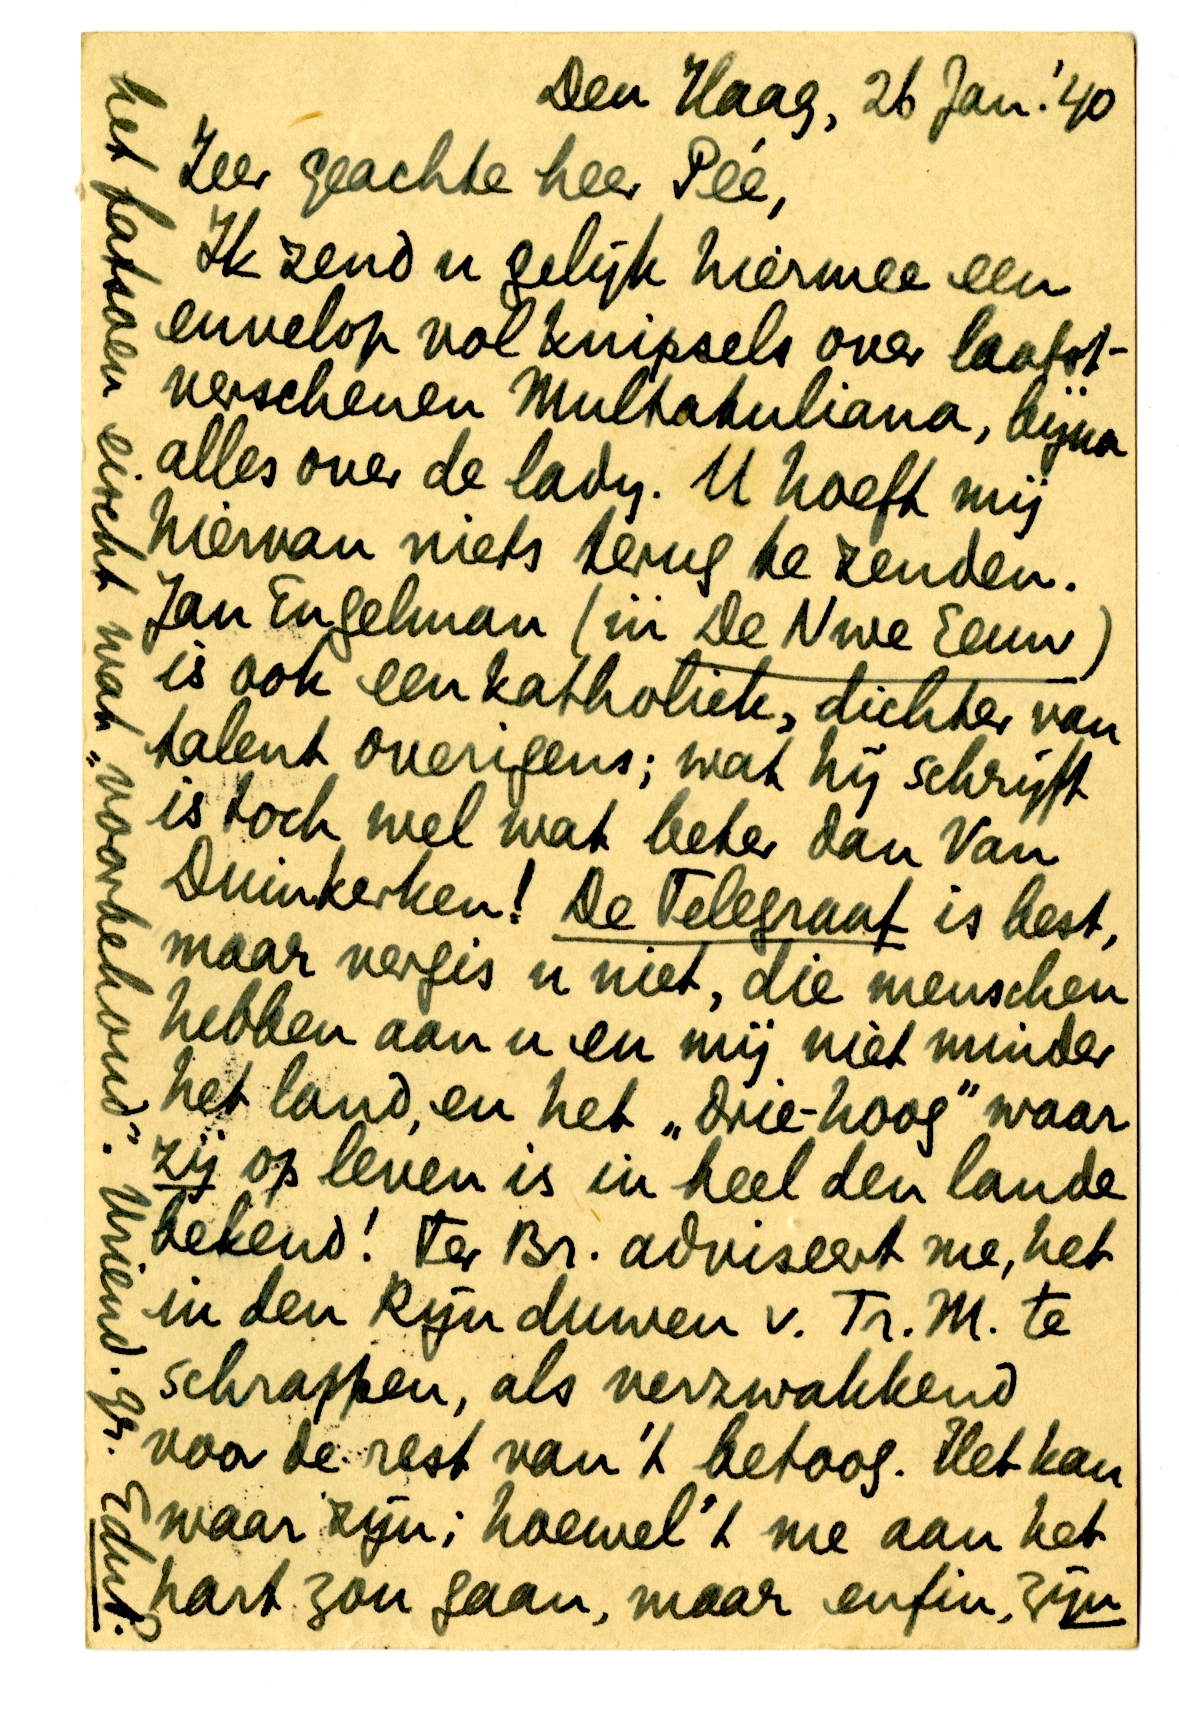 Den Haag, 26 Jan. '40
Zeer geachte heer Pée,
Ik zend u gelijk hiermee een
envelop vol knipsels over laatst-
verschenen Multatuliana, bijna
alles over de lady. U hoeft mij
hiervan niets terug te zenden.
Jan Engelman (in De Nwe Eeuw)
is ook een katholiek, dichter van
talent overigens; wat hij schrijft
is toch wel wat beter dan Van
Duinkerken! De Telegraaf is best,
maar vergis u niet, die menschen
hebben aan u en mij niet minder
het land, en het „drie-hoog” waar
zij op leven is in heel den lande
bekend! Ter Br. adviseert me, het
in den Rijn duwen v. Tr. M. te
schrappen, als verzwakkend
voor de rest van 't betoog. Het kan
waar zijn; hoewel 't me aan het
hart zou gaan, maar enfin, zijn
het fatsoen eischt wat „voorbehoud”. Vriend. gr. EduP.